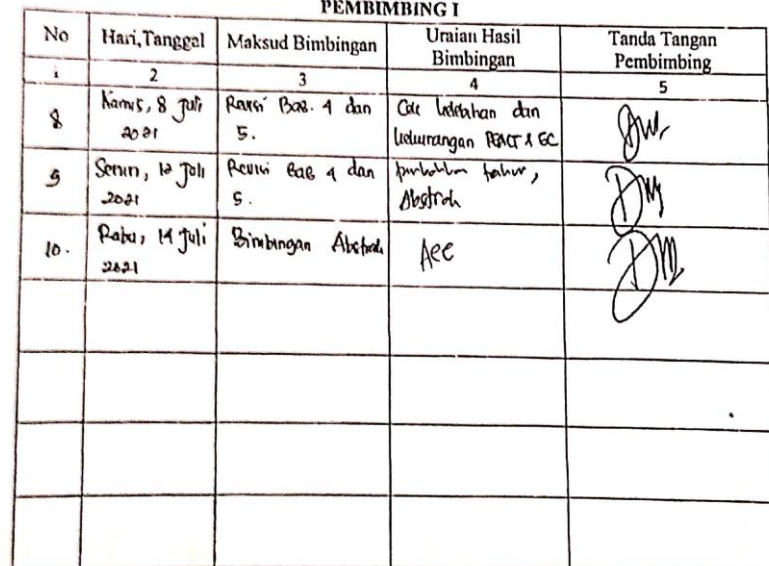 PEMBIMBING I
No Hari,Tanggal Maksud Bimbingan Uraian Hasil Bimbingan Tanda Tangan Pembimbing
1 2 3 4 5
8 Kamis, 8 Juli 2021 Revisi Bab. 4 dan 5. dan kekurangan PEACT & EC
9 Senin, 12 Juli 2021 Revisi Bab 4 dan 5. Abstrak
10. Rabu, 14 Juli 2021 Bimbingan Abstrak Acc